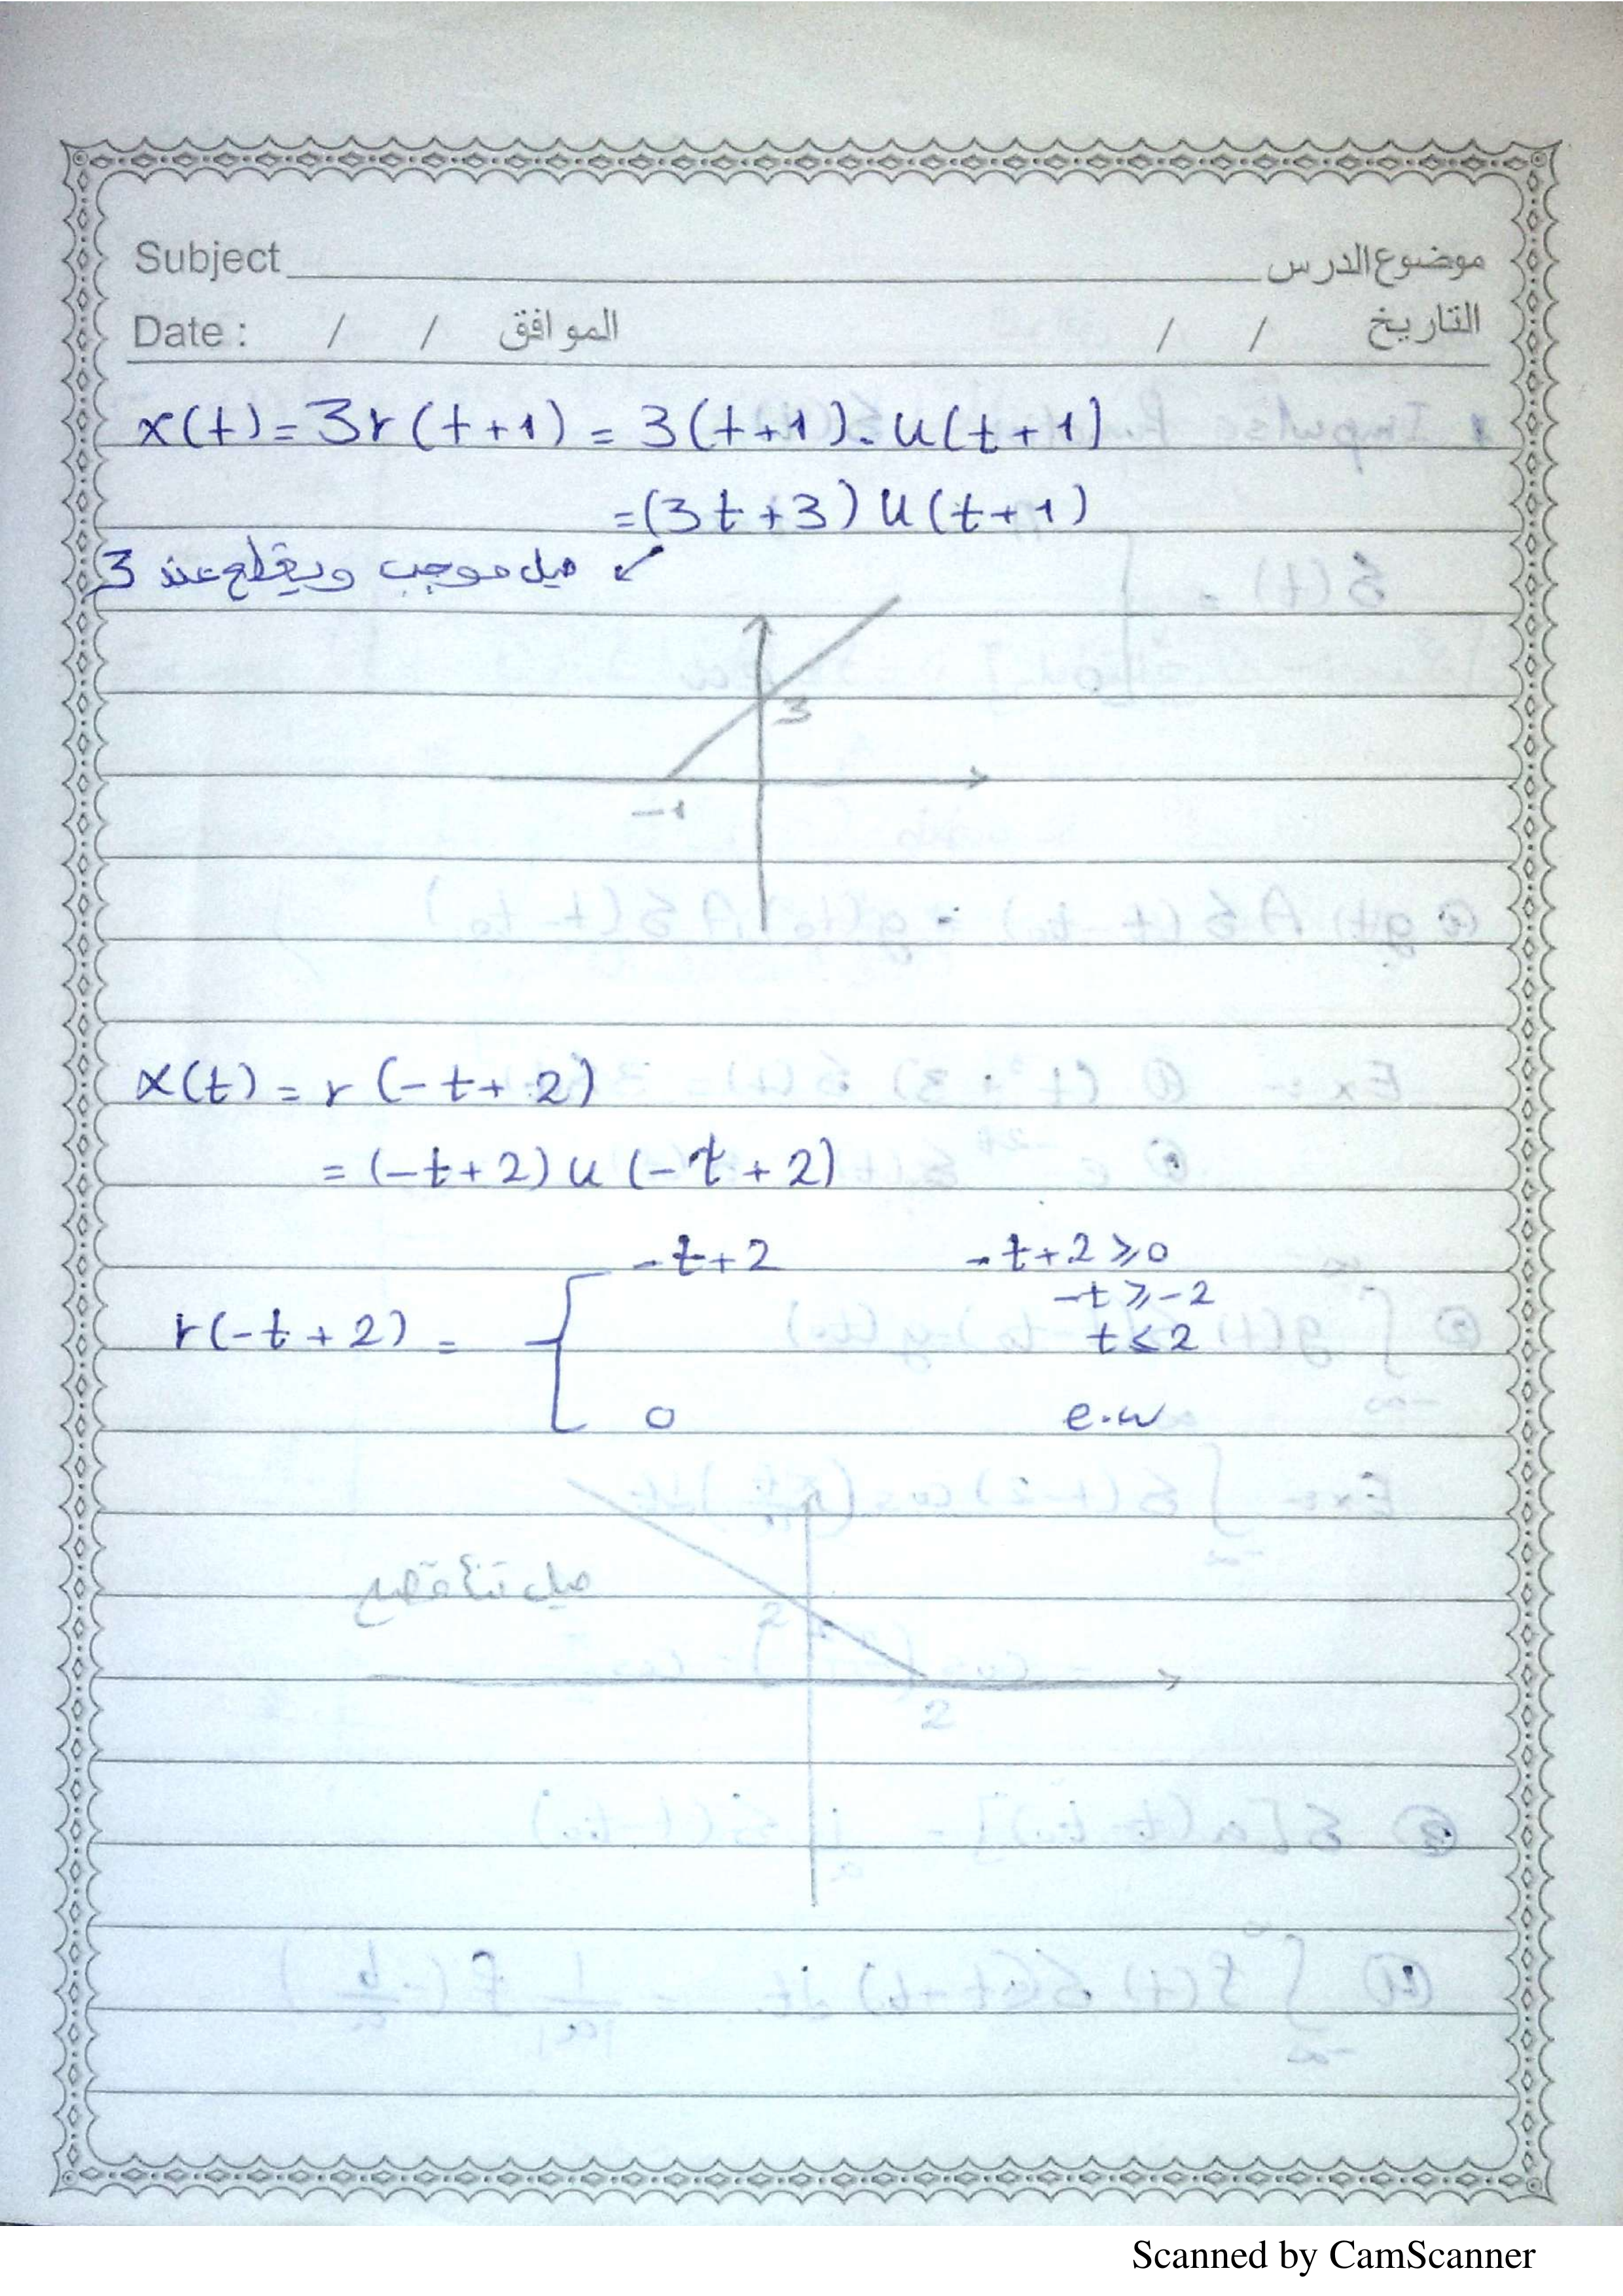 Subject موضوع الدرس
Date : / / الموافق / / التاريخ
x(t) = 3r(t+1) = 3(t+1). u(t+1)
=(3t+3) u(t+1)
ميل موجب ويقطع عند 3
3
-1
x(t) = r(-t+2)
= (-t+2) u (-t+2)
-t+2 -t+2 ⩾ 0
-t ⩾ -2
r(-t+2) = t ⩽ 2
0 e.w
ميل
2
2
Scanned by CamScanner